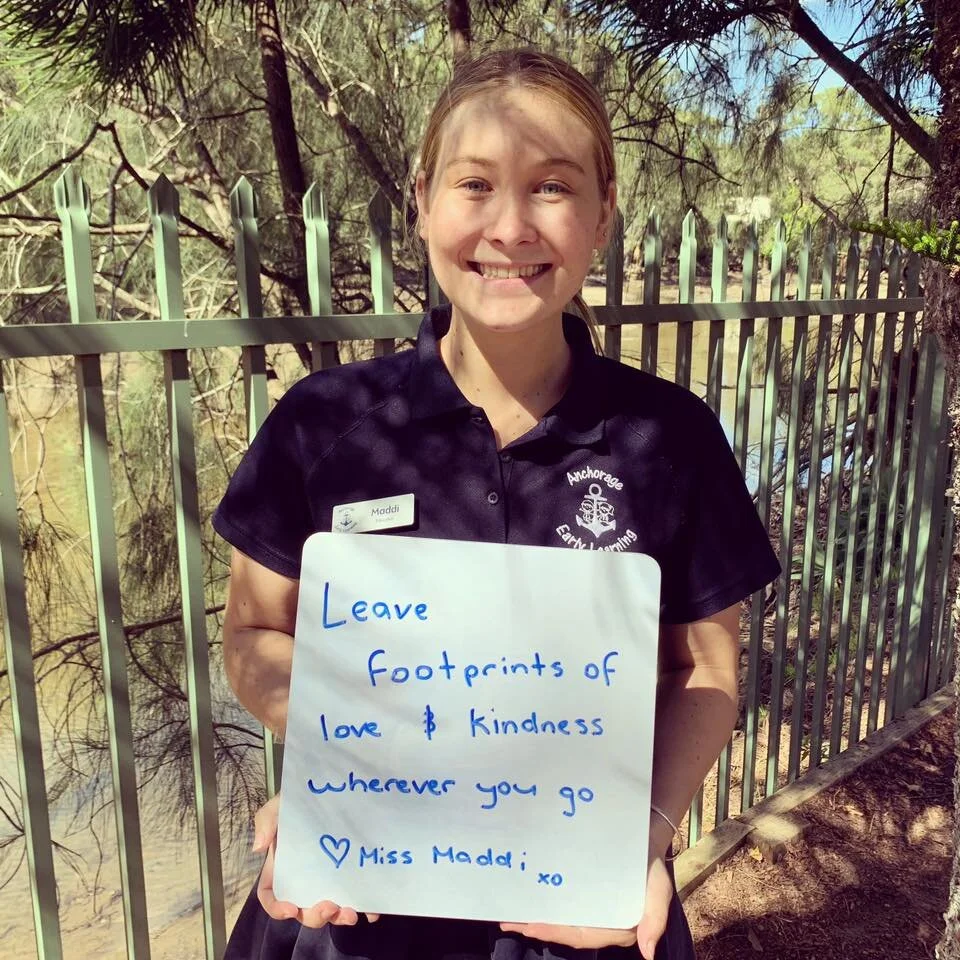 Anchorage
Early Learning
Maddi
Leave
footprints of
love & kindness
wherever you go
♡ Miss Maddi xo